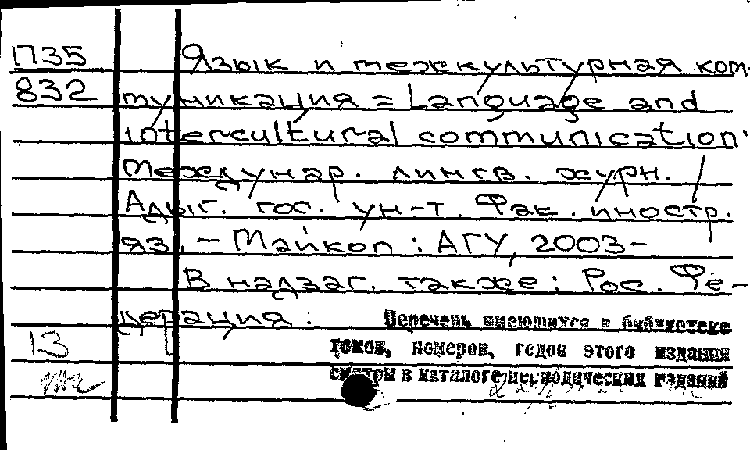 П35 Язык и межкультурная ком-
832 муникация = Language and
intercultural communication:
Междунар. лингв. журн. /
Адыг. гос. ун-т. Фак. иностр.
яз. – Майкоп : АГУ, 2003–
В надзаг. также: Рос. Фе-
дерация.
Перечень имеющихся в библиотеке
13 томов, номеров, годов этого издания
смотри в каталоге периодических изданий